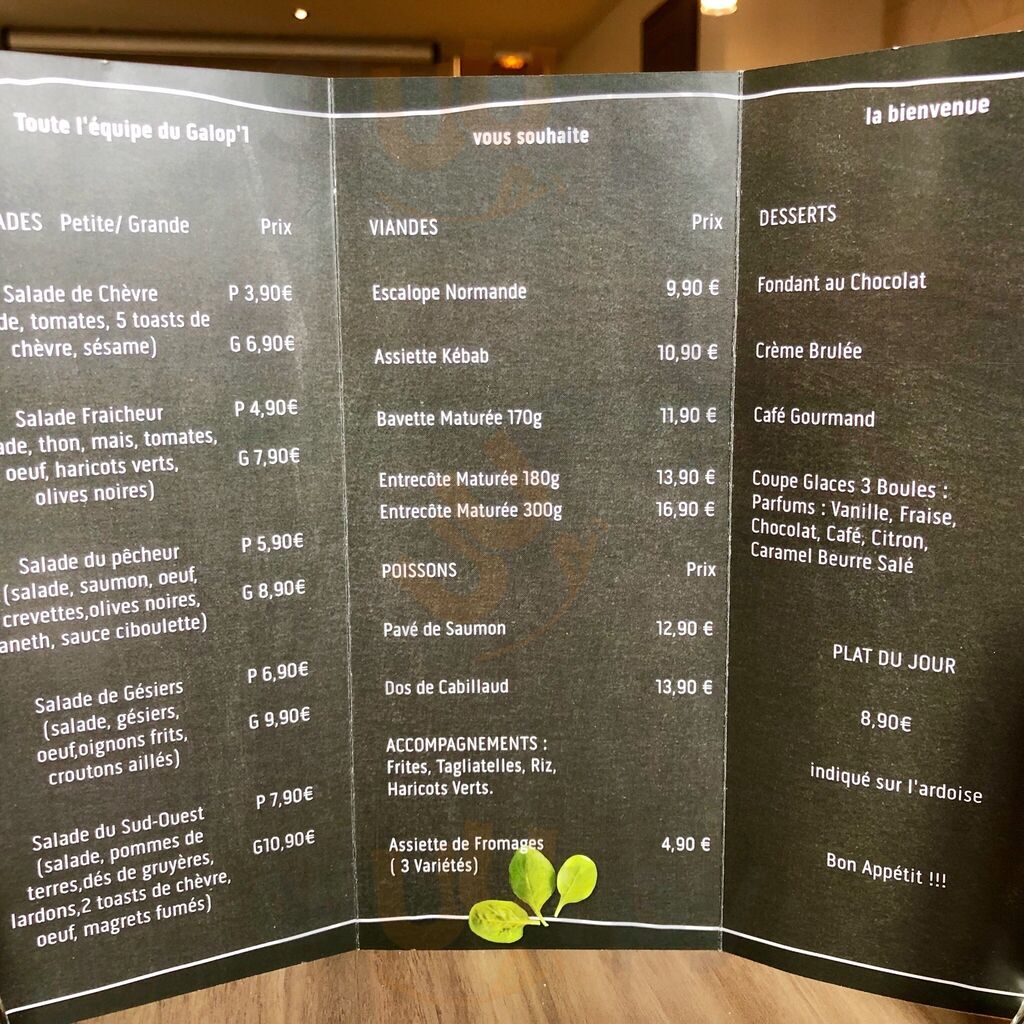 Toute l'équipe du Galop'1
vous souhaite
la bienvenue
Petite/ Grande Prix
Salade de Chèvre P 3,90€
tomates, 5 toasts de
chèvre, sésame) G 6,90€
Salade Fraicheur P 4,90€
thon, mais, tomates,
oeuf, haricots verts, G 7,90€
olives noires)
Salade du pêcheur P 5,90€
(salade, saumon, oeuf,
crevettes,olives noires, G 8,90€
aneth, sauce ciboulette)
Salade de Gésiers P 6,90€
(salade, gésiers,
oeuf,oignons frits, G 9,90€
croutons aillés)
Salade du Sud-Ouest P 7,90€
(salade, pommes de
terres,dés de gruyères, G10,90€
lardons,2 toasts de chèvre,
oeuf, magrets fumés)
VIANDES Prix
Escalope Normande 9,90 €
Assiette Kébab 10,90 €
Bavette Maturée 170g 11,90 €
Entrecôte Maturée 180g 13,90 €
Entrecôte Maturée 300g 16,90 €
POISSONS Prix
Pavé de Saumon 12,90 €
Dos de Cabillaud 13,90 €
ACCOMPAGNEMENTS :
Frites, Tagliatelles, Riz,
Haricots Verts.
Assiette de Fromages 4,90 €
( 3 Variétés)
DESSERTS
Fondant au Chocolat
Crème Brulée
Café Gourmand
Coupe Glaces 3 Boules :
Parfums : Vanille, Fraise,
Chocolat, Café, Citron,
Caramel Beurre Salé
PLAT DU JOUR
8,90€
indiqué sur l'ardoise
Bon Appétit !!!